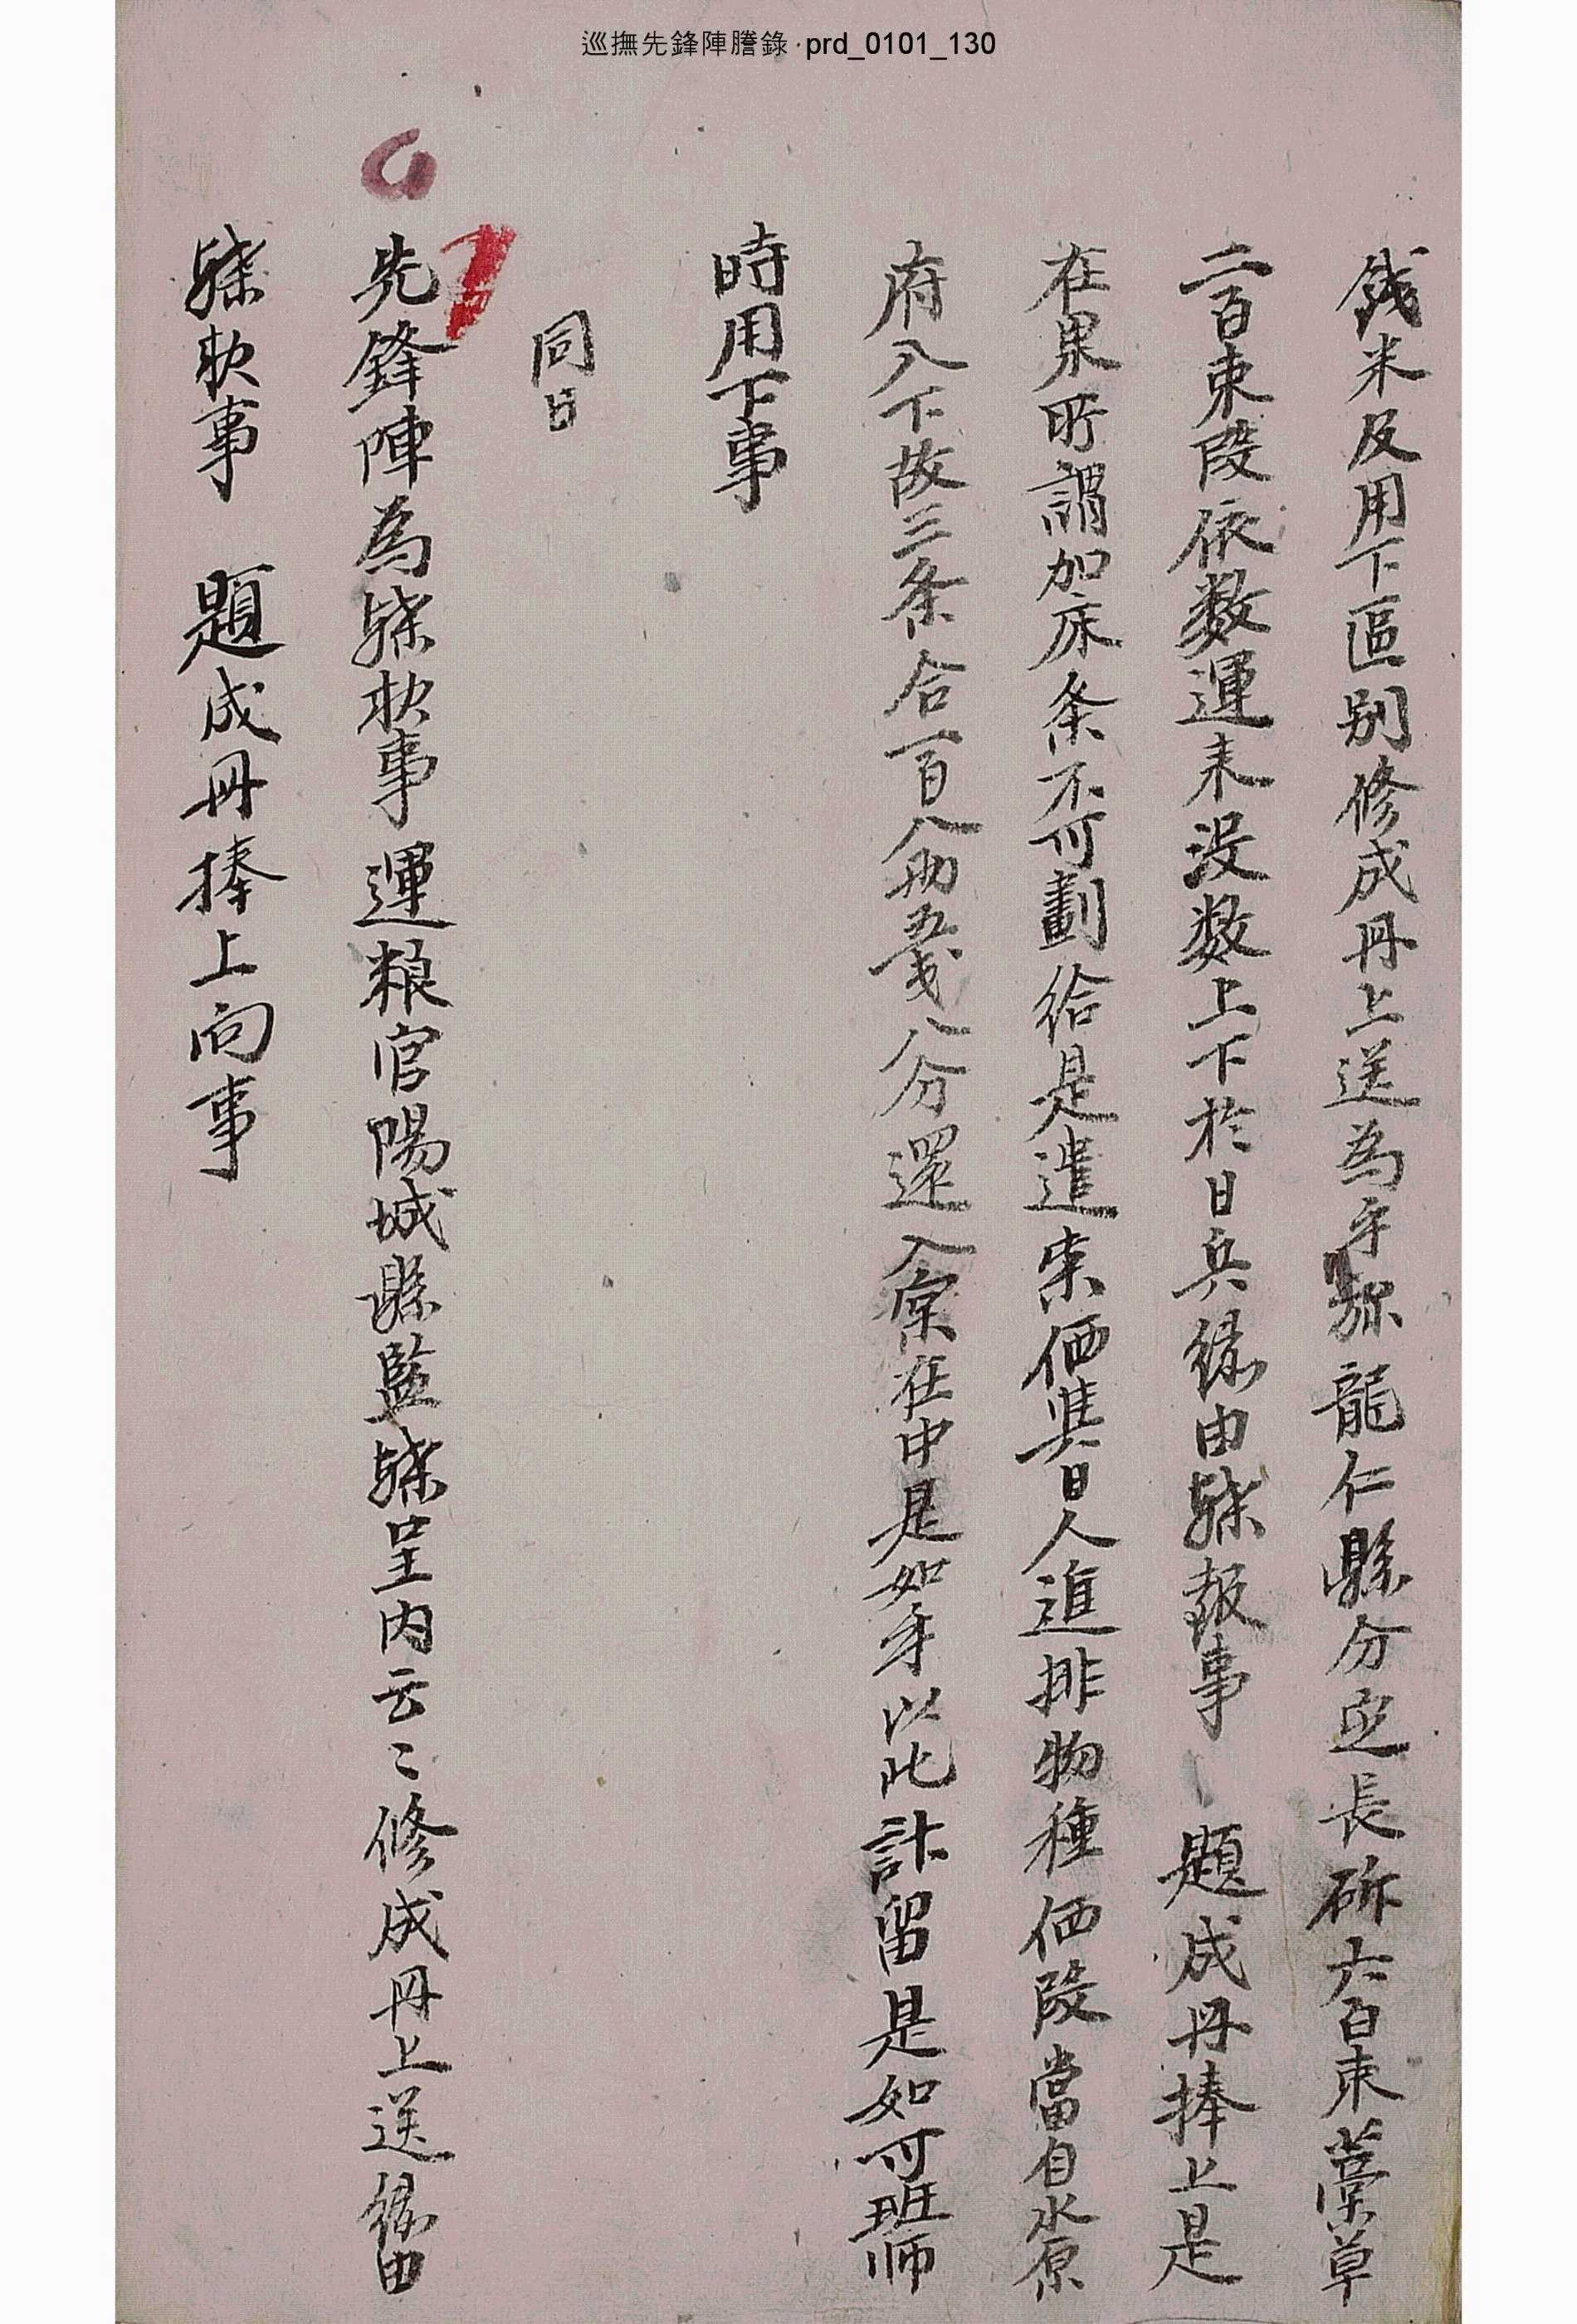 巡撫先鋒陣謄錄·prd_0101_130
錢米及用下區別修成冊上送爲乎旀龍仁縣分定長斫六百束藁草
二百束段依數運來沒數上下於日兵緣由牒報事 題成冊捧上是
在果所謂加床条不可劃給是遣柴価與日人進排物種価段當自水原
府入下故三条合百八兩五戔八分還入實在中是如乎以此計留是如可班師
時用下事
同日
先鋒陣為牒狀事運粮官陽城縣監牒呈內云〻修成冊上送緣由
牒狀事 題成冊捧上向事